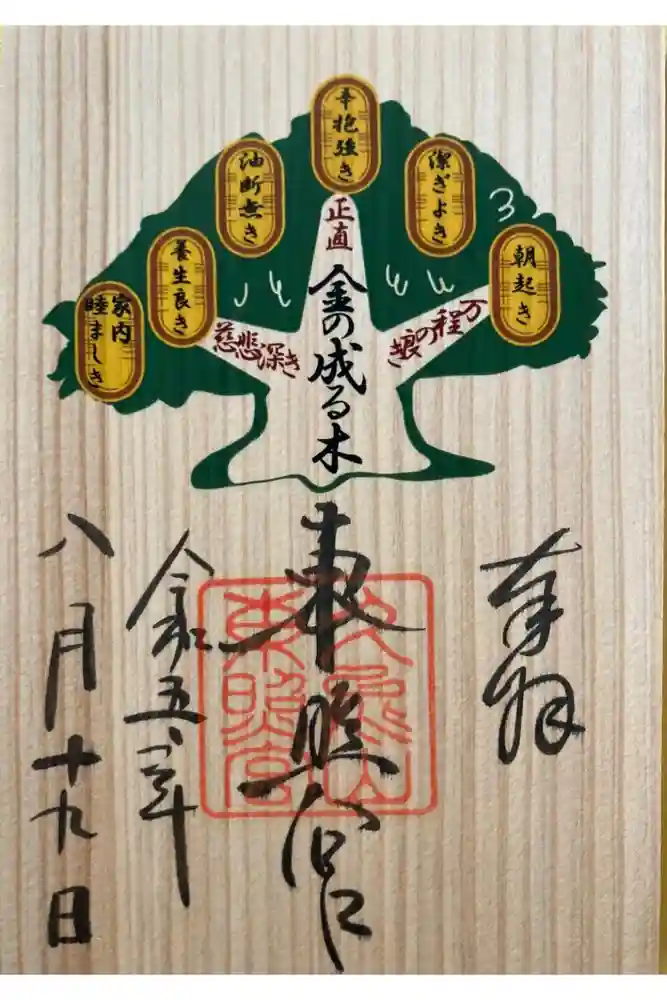 朝起き
潔ぎよき
辛抱強き
油断無き
養生良き
家内
睦ましき
万程の
正直
慈悲深き
金の成る木
奉拝
東照宮
久能山
東照宮
令和五年
八月十九日